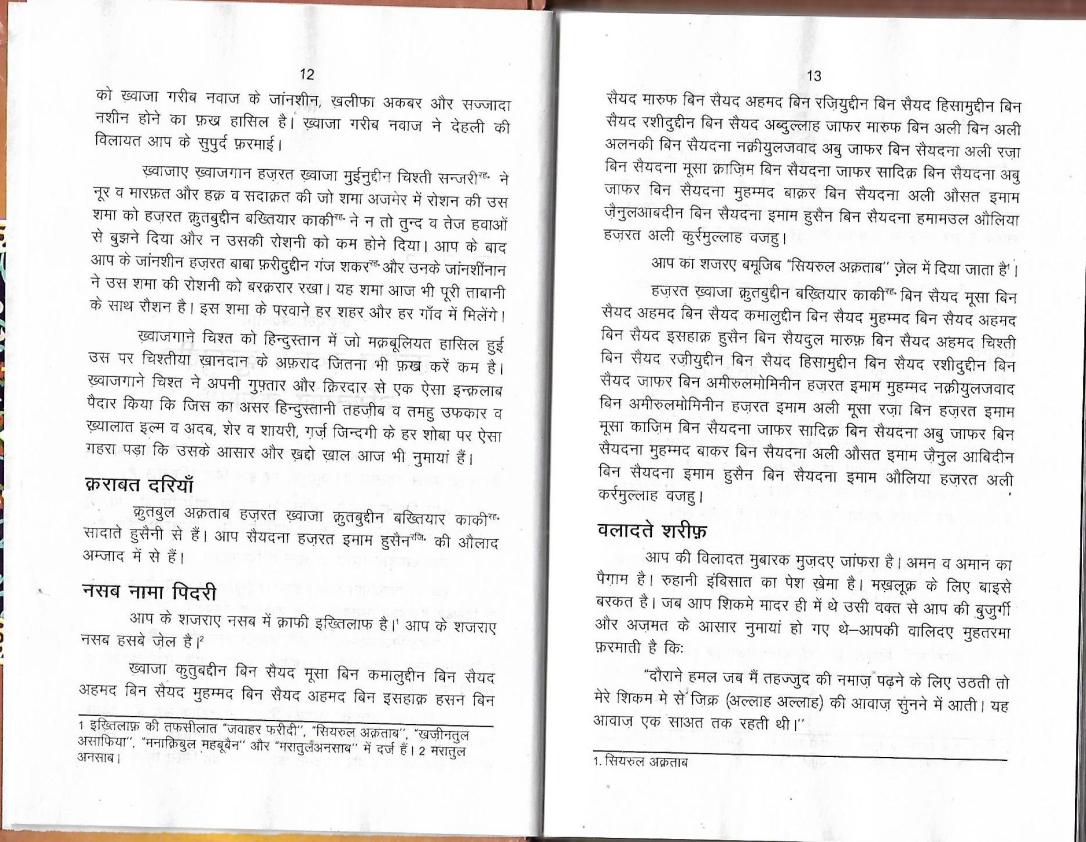 12
को ख्वाजा गरीब नवाज के जांनशीन, ख़लीफा अकबर और सज्जादा
नशीन होने का फ़ख हासिल है। ख़्वाजा गरीब नवाज ने देहली की
विलायत आप के सुपुर्द फ़रमाई।
ख्वाजाए ख़्वाजगान हज़रत ख्वाजा मुईनुद्दीन चिश्ती सन्जरीरह॰ ने
नूर व मारफ़त और हक़ व सदाक़त की जो शमा अजमेर में रोशन की उस
शमा को हज़रत क़ुतबुद्दीन बख्तियार काकीरह॰ ने न तो तुन्द व तेज हवाओं
से बुझने दिया और न उसकी रोशनी को कम होने दिया। आप के बाद
आप के जांनशीन हज़रत बाबा फ़रीदुद्दीन गंज शकररह॰ और उनके जांनशींनान
ने उस शमा की रोशनी को बरक़रार रखा। यह शमा आज भी पूरी ताबानी
के साथ रौशन है। इस शमा के परवाने हर शहर और हर गाँव में मिलेंगे।
ख़्वाजगाने चिश्त को हिन्दुस्तान में जो मक़बूलियत हासिल हुई
उस पर चिश्तीया ख़ानदान के अफ़राद जितना भी फ़ख करें कम है।
ख्वाजगाने चिश्त ने अपनी गुफ़्तार और क़िरदार से एक ऐसा इन्क़लाब
पैदार किया कि जिस का असर हिन्दुस्तानी तहजीब व तमहु उफकार व
ख़्यालात इल्म व अदब, शेर व शायरी, ग़र्ज़ जिन्दगी के हर शोबा पर ऐसा
गहरा पड़ा कि उसके आसार और ख़द्दो ख़ाल आज भी नुमायां हैं।
क़राबत दरियाँ
क़ुतबुल अक़ताब हज़रत ख़्वाजा क़ुतबुद्दीन बख्तियार काकीरह॰
सादाते हुसैनी से हैं। आप सैयदना हज़रत इमाम हुसैनरज़ि॰ की औलाद
अम्जाद में से हैं।
नसब नामा पिदरी
आप के शजराए नसब में क़ाफी इख्तिलाफ है।¹ आप के शजराए
नसब हसबे ज़ेल है।²
ख्वाजा कुतुबद्दीन बिन सैयद मूसा बिन कमालुद्दीन बिन सैयद
अहमद बिन सैयद मुहम्मद बिन सैयद अहमद बिन इसहाक़ हसन बिन
1 इख्तिलाफ़ की तफसीलात "जवाहर फरीदी", "सियरुल अक़ताब", "खज़ीनतुल
असाफिया", "मनाक़िबुल महबूबैन" और "मरातुलअनसाब" में दर्ज हैं। 2 मरातुल
अनसाब।
13
सैयद मारुफ बिन सैयद अहमद बिन रज़ियुद्दीन बिन सैयद हिसामुद्दीन बिन
सैयद रशीदुद्दीन बिन सैयद अब्दुल्लाह जाफर मारुफ बिन अली बिन अली
अलनकी बिन सैयदना नक़ीयुलजवाद अबु जाफर बिन सैयदना अली रज़ा
बिन सैयदना मूसा क़ाज़िम बिन सैयदना जाफर सादिक़ बिन सैयदना अबु
जाफर बिन सैयदना मुहम्मद बाक़र बिन सैयदना अली औसत इमाम
ज़ैनुलआबदीन बिन सैयदना इमाम हुसैन बिन सैयदना हमामउल औलिया
हज़रत अली कुर्रमुल्लाह वजहु।
आप का शजरए बमूजिब "सियरुल अक़ताब" ज़ेल में दिया जाता है¹।
हज़रत ख्वाजा क़ुतबुद्दीन बख्तियार काकीरह॰ बिन सैयद मूसा बिन
सैयद अहमद बिन सैयद कमालुद्दीन बिन सैयद मुहम्मद बिन सैयद अहमद
बिन सैयद इसहाक़ हुसैन बिन सैयदुल मारुफ़ बिन सैयद अहमद चिश्ती
बिन सैयद रज़ीयुद्दीन बिन सैयद हिसामुद्दीन बिन सैयद रशीदुद्दीन बिन
सैयद जाफर बिन अमीरुलमोमिनीन हजरत इमाम मुहम्मद नक़ीयुलजवाद
बिन अमीरुलमोमिनीन हज़रत इमाम अली मूसा रज़ा बिन हज़रत इमाम
मूसा काज़िम बिन सैयदना जाफर सादिक़ बिन सैयदना अबु जाफर बिन
सैयदना मुहम्मद बाकर बिन सैयदना अली औसत इमाम ज़ैनुल आबिदीन
बिन सैयदना इमाम हुसैन बिन सैयदना इमाम औलिया हज़रत अली
कर्रमुल्लाह वजहु।
वलादते शरीफ़
आप की विलादत मुबारक मुज़दए जांफरा है। अमन व अमान का
पैग़ाम है। रुहानी इंबिसात का पेश ख़ेमा है। मख़लूक़ के लिए बाइसे
बरकत है। जब आप शिकमे मादर ही में थे उसी वक्त से आप की बुजुर्गी
और अज़मत के आसार नुमायां हो गए थे–आपकी वालिदए मुहतरमा
फ़रमाती है कि:
"दौराने हमल जब मैं तहज्जुद की नमाज़ पढ़ने के लिए उठती तो
मेरे शिकम मे से जिक्र (अल्लाह अल्लाह) की आवाज़ सुंनने में आती। यह
आवाज़ एक साअत तक रहती थी।"
1. सियरुल अक़ताब